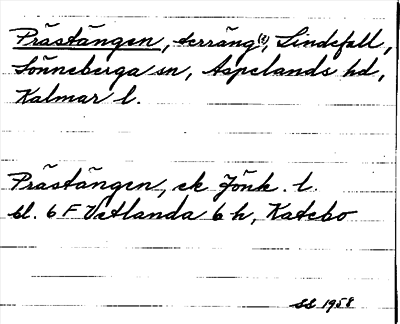 Prästängen, terräng(t), Lindefall,
Lönneberga sn, Aspelands hd,
Kalmar l.
Prästängen, ek Jönk. l.
bl. 6 F Vetlanda 6 h, Katebo
SS 1958